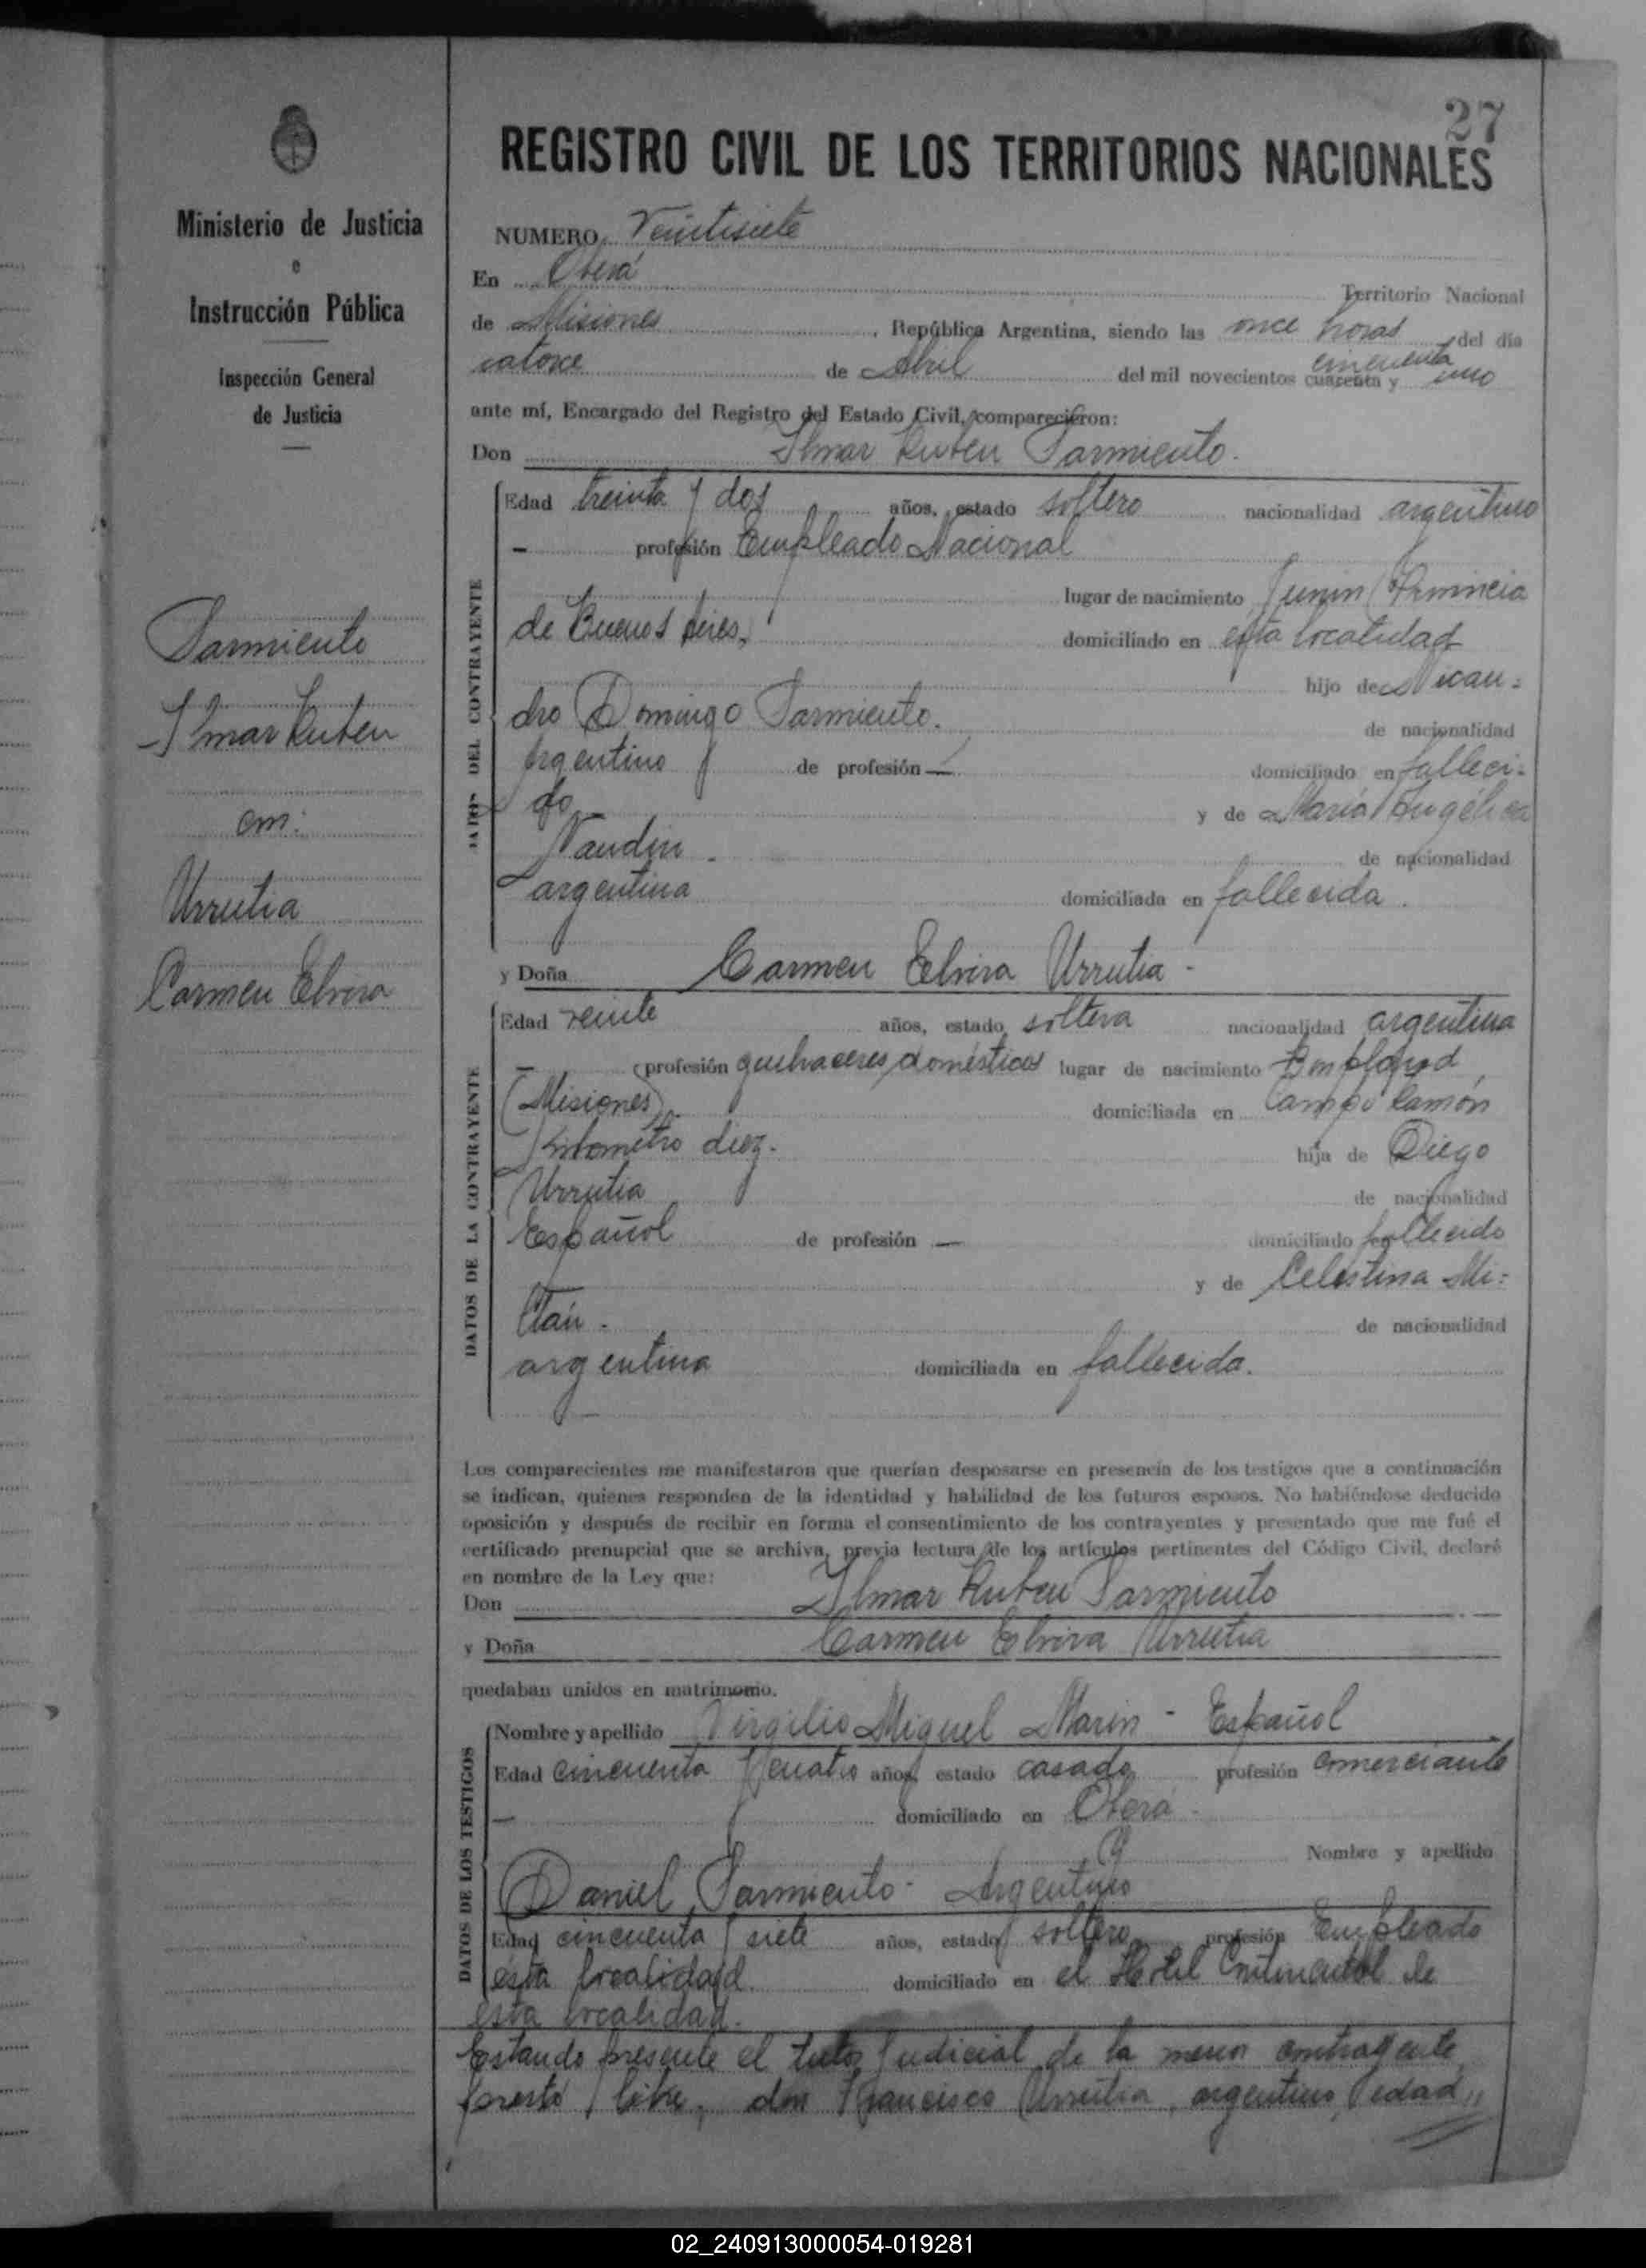 27
REGISTRO CIVIL DE LOS TERRITORIOS NACIONALES
Ministerio de Justicia
e
Instrucción Pública
Inspección General
de Justicia
Sarmiento
Ilmar Ruben
con:
Urrutia
Carmen Elvira
NUMERO Veintisiete
En Oberá
Territorio Nacional
de Misiones, República Argentina, siendo las once horas del día
catorce de Abril del mil novecientos cuarenta y cincuenta uno
ante mí, Encargado del Registro del Estado Civil, comparecieron:
Don Ilmar Ruben Sarmiento.
DATOS DEL CONTRAYENTE
Edad treinta y dos años, estado soltero nacionalidad argentino
— profesión Empleado Nacional
lugar de nacimiento Junin (Provincia
de Buenos Aires, domiciliado en esta localidad
hijo de Nican=
dro Domingo Sarmiento.
de nacionalidad
Argentino de profesión — domiciliado en falleci-
do y de María Angélica
Naudin.
de nacionalidad
argentina domiciliada en fallecida.
y Doña Carmen Elvira Urrutia -
DATOS DE LA CONTRAYENTE
Edad veinte años, estado soltera nacionalidad argentina
— profesión quehaceres domésticos lugar de nacimiento Bompland
(Misiones) domiciliada en Campo Ramón
Kilometro diez.
hija de Diego
Urrutia
de nacionalidad
Español de profesión — domiciliado en fallecido
y de Celestina Mi=
ltán.
de nacionalidad
argentina domiciliada en fallecida.
Los comparecientes me manifestaron que querían desposarse en presencia de los testigos que a continuación
se indican, quienes responden de la identidad y habilidad de los futuros esposos. No habiéndose deducido
oposición y después de recibir en forma el consentimiento de los contrayentes y presentado que me fué el
certificado prenupcial que se archiva, previa lectura de los artículos pertinentes del Código Civil, declaré
en nombre de la Ley que:
Don Ilmar Ruben Sarmiento
y Doña Carmen Elvira Urrutia
quedaban unidos en matrimonio.
DATOS DE LOS TESTIGOS
Nombre y apellido Virgilio Miguel Marin - Español
Edad cincuenta y cuatro años, estado casado profesión comerciante
— domiciliado en Oberá -
Nombre y apellido
Daniel Sarmiento - Argentino
Edad cincuenta y siete años, estado soltero profesión Empleado
esta localidad domiciliado en el Hotel Continental de
esta localidad.
Estando presente el tutor judicial de la menor contrayente
don Francisco Urrutia, argentino, edad
02_240913000054-019281